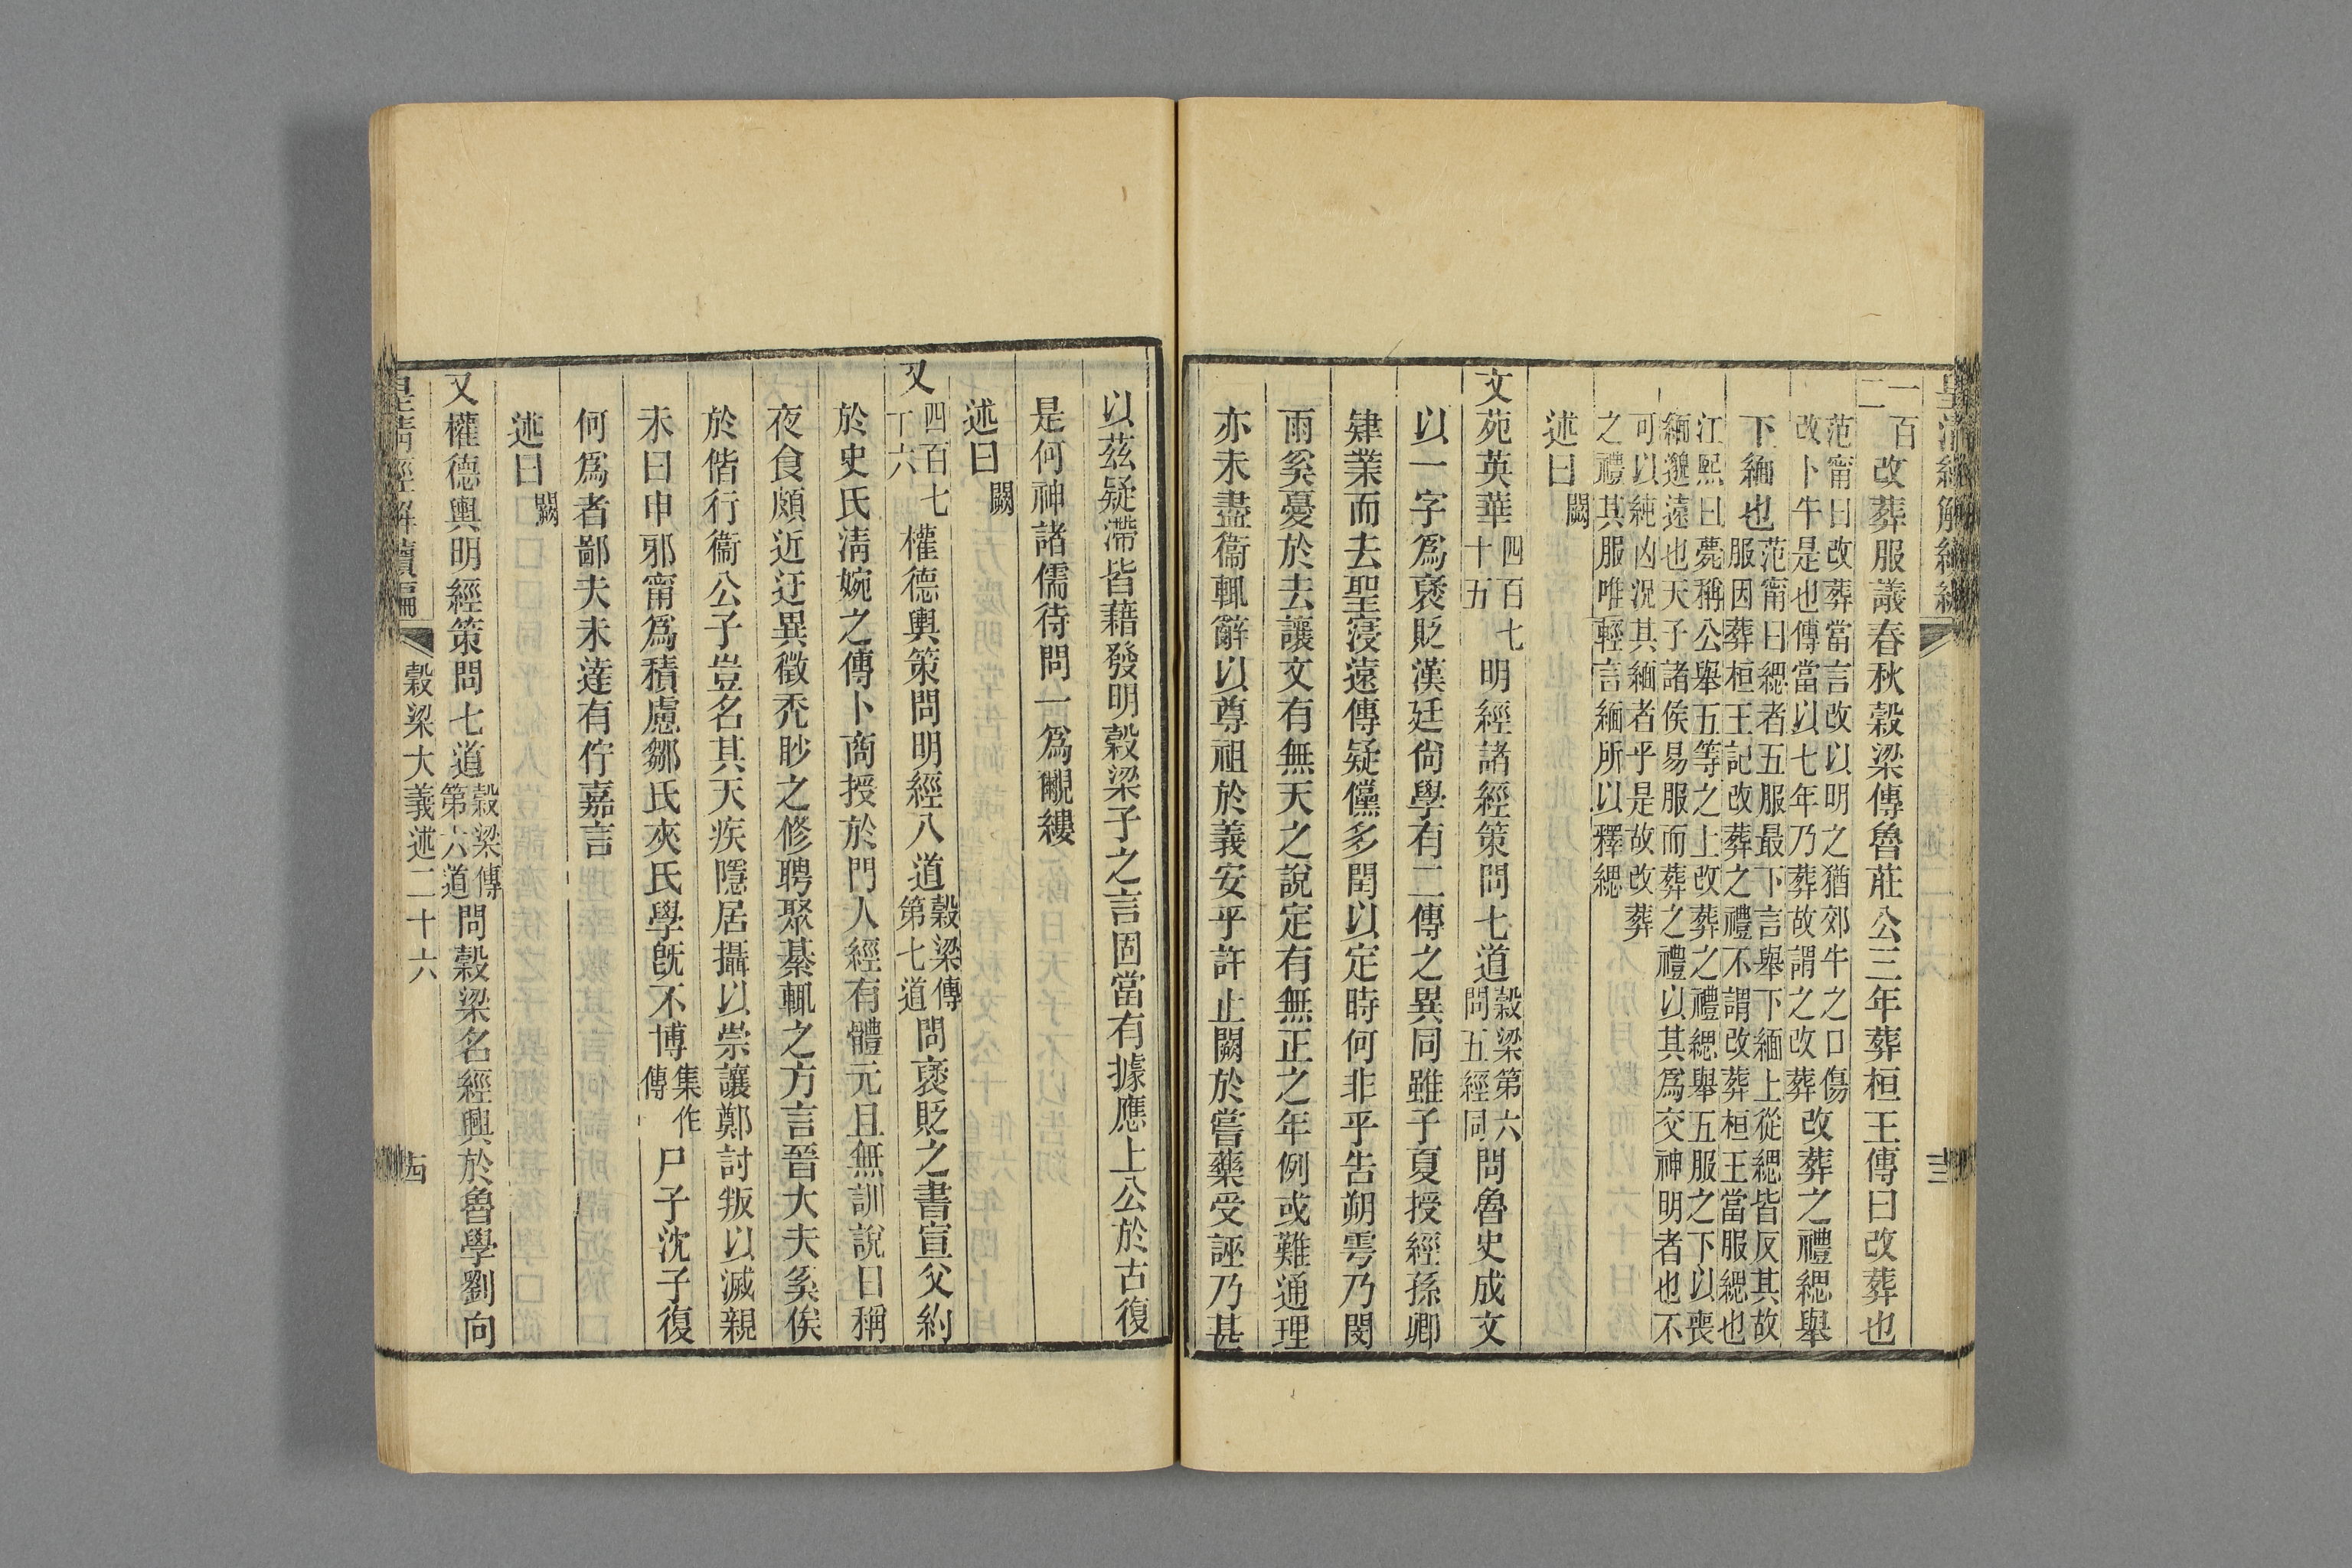 皇清經解續編
一百二改葬服議春秋穀梁傳魯莊公三年葬桓王傳曰改葬也
范甯曰改葬當言改以明之猶郊牛之口傷
改卜牛是也傳當以七年乃葬故謂之改葬
改葬之禮緦舉
下緬也
范甯曰緦者五服最下言舉下緬上從緦皆反其故
服因葬桓王記改葬之禮不謂改葬桓王當服緦也
江熙曰葬稱公舉五等之上改葬之禮緦舉五服之下以喪
緬邈遠也天子諸侯易服而葬之禮以其爲交神明者也不
可以純凶況其緬者乎是故改葬
之禮其服唯輕言緬所以釋緦
述曰闕
文苑英華四百七十五明經諸經策問七道穀梁第六問五經同問魯史成文
以一字爲襃貶漢廷尙學有二傳之異同雖子夏授經孫卿
肄業而去聖寖遠傳疑儻多閏以定時何非乎告朔雩乃閔
雨奚憂於去讓文有無天之說定有無正之年例或難通理
亦未盡衞輒辭以尊祖於義安乎許止闕於嘗藥受誣乃甚
以茲疑滯皆藉發明穀梁子之言固當有據應上公於古復
是何神諸儒待問一爲覼縷
述曰闕
又四百七十六權德輿策問明經八道穀梁傳第七道問襃貶之書宣父約
於史氏淸婉之傳卜商授於門人經有體元且無訓說日稱
夜食頗近迂異徵禿眇之修聘聚綦輒之方言晉大夫奚俟
於偕行衞公子豈名其天疾隱居攝以崇讓鄭討叛以滅親
未曰申邪甯爲積慮鄒氏夾氏學旣不博集作傳尸子沈子復
何爲者鄙夫未達有佇嘉言
述曰闕
又權德輿明經策問七道穀梁傳第六道問穀梁名經興於魯學劉向
皇淸經解續編
穀梁大義述二十六